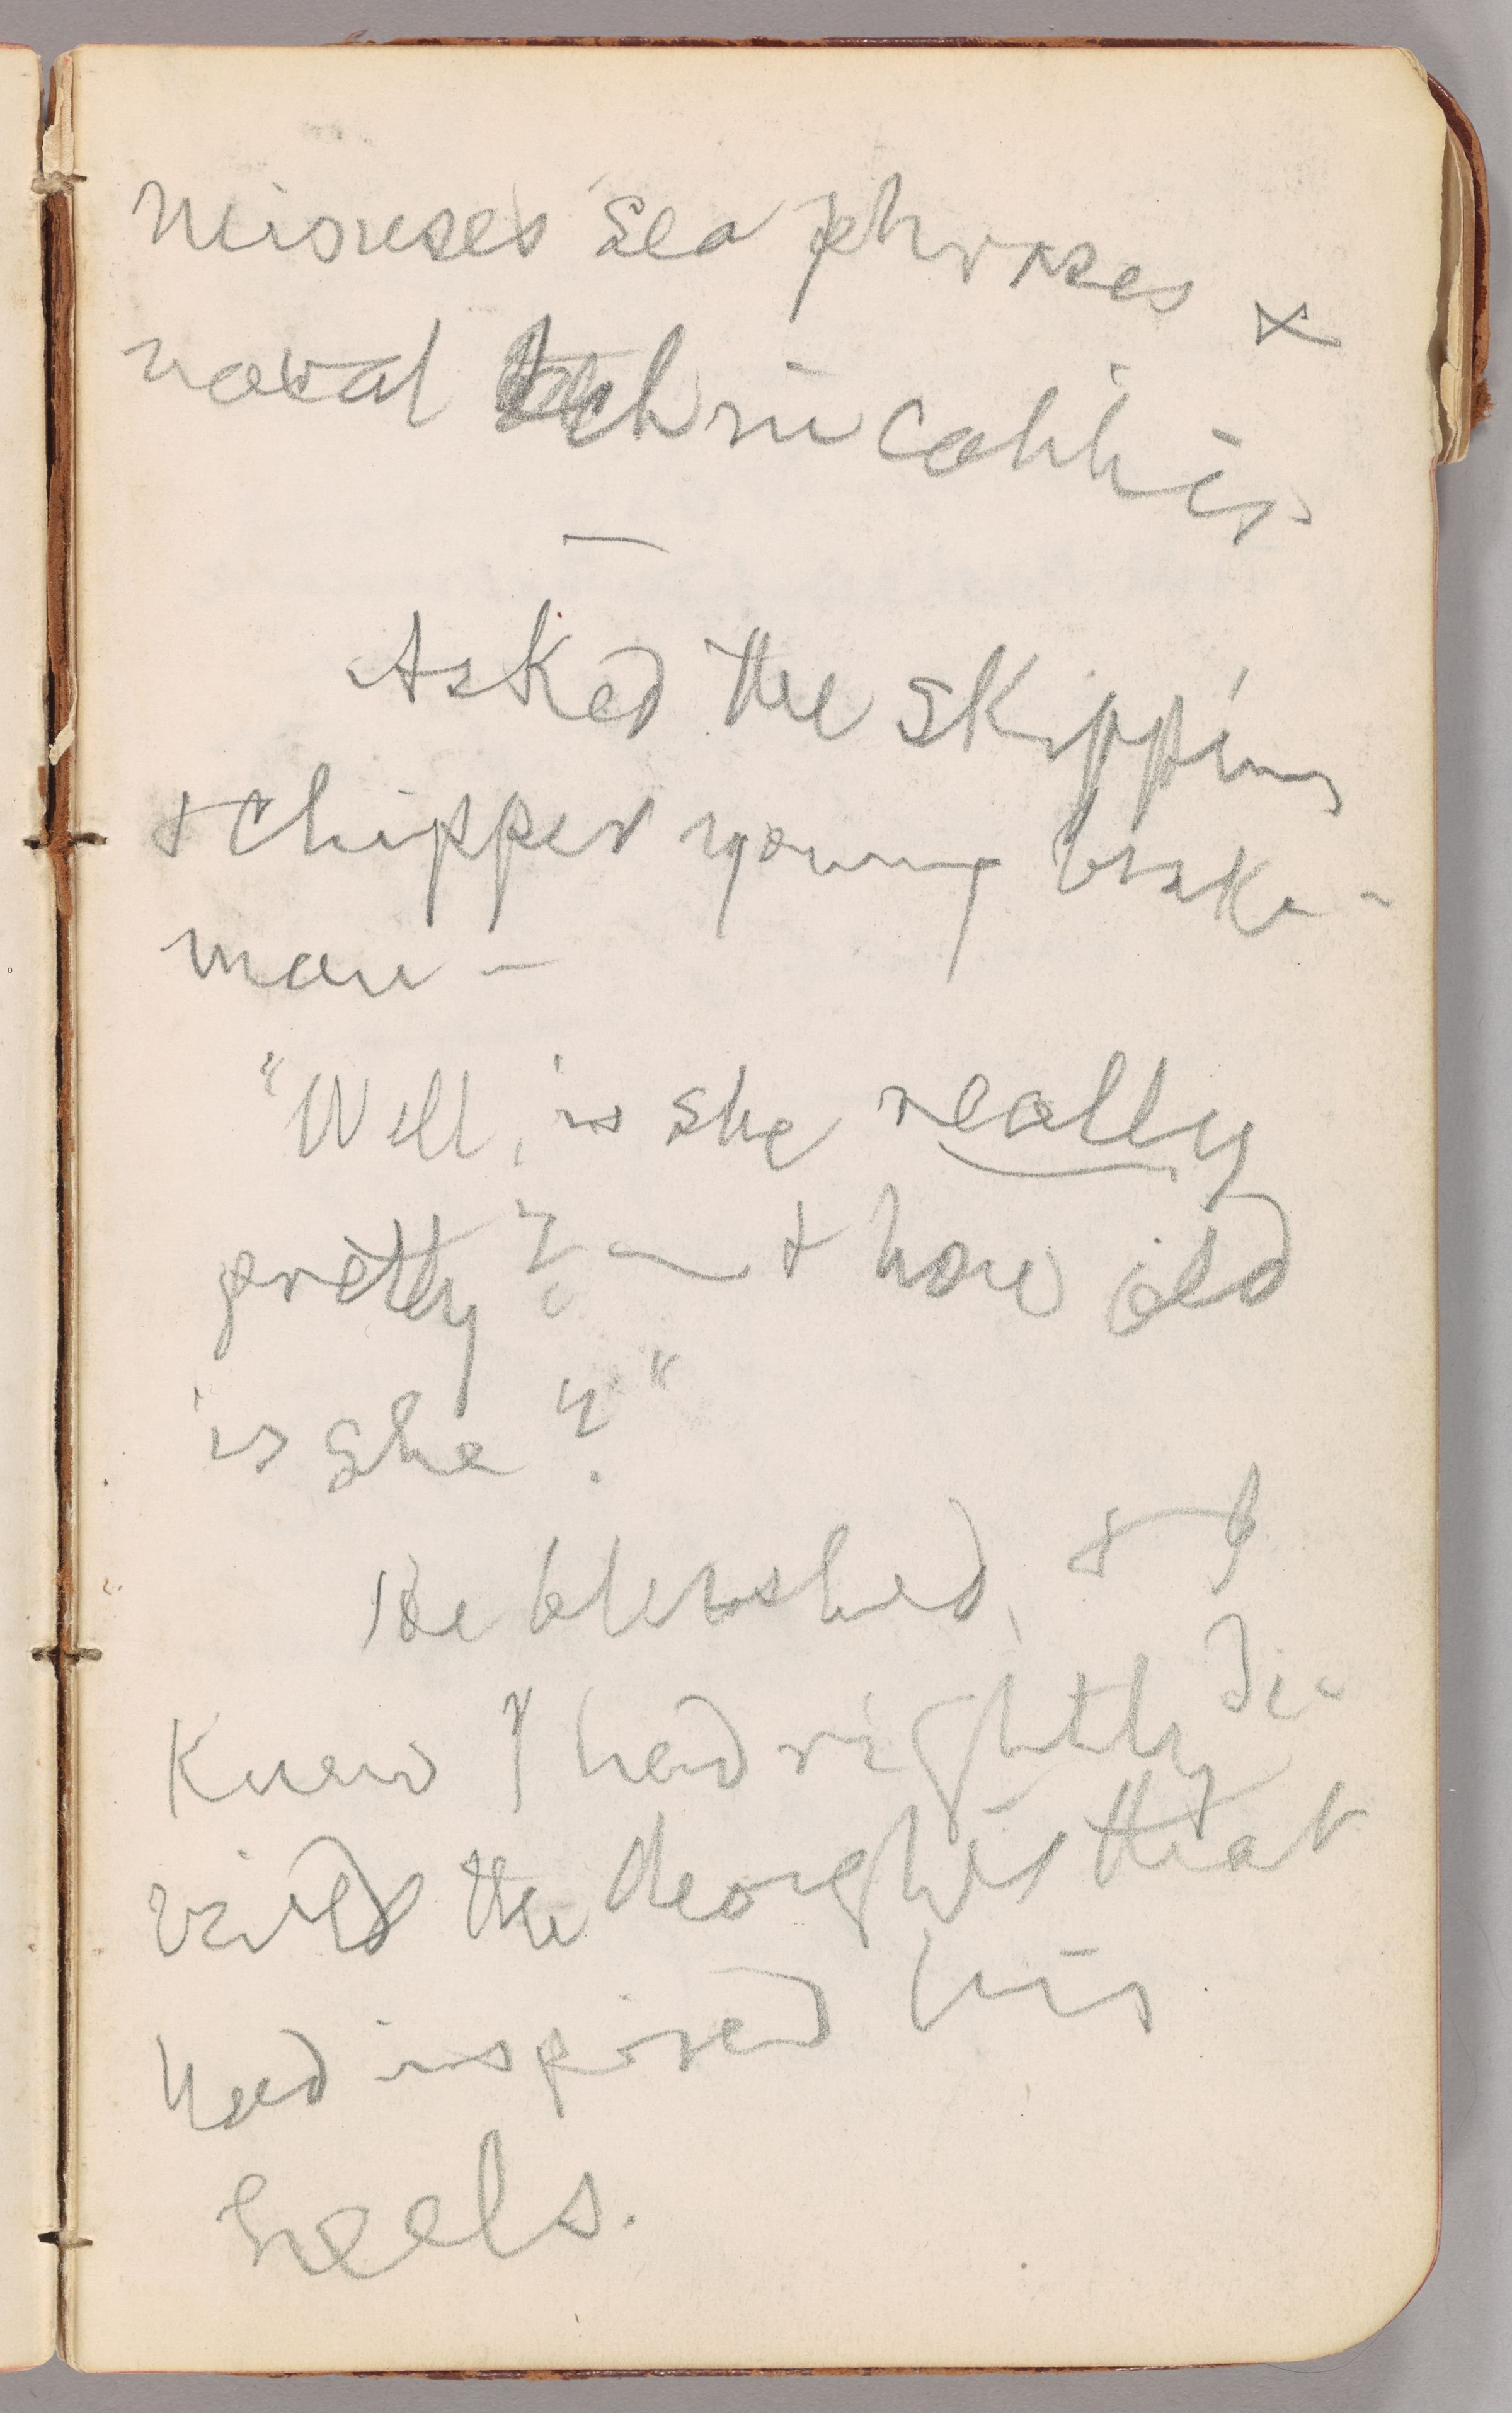 misuses sea phrases &
naval technicalities
—
Asked the skipping
& chipper young brake-
man —
"Well, is she really
pretty? — & how old
is she?"
He blushed, & I
knew I had rightly di-
vined the thoughts that
had inspired his
heels.